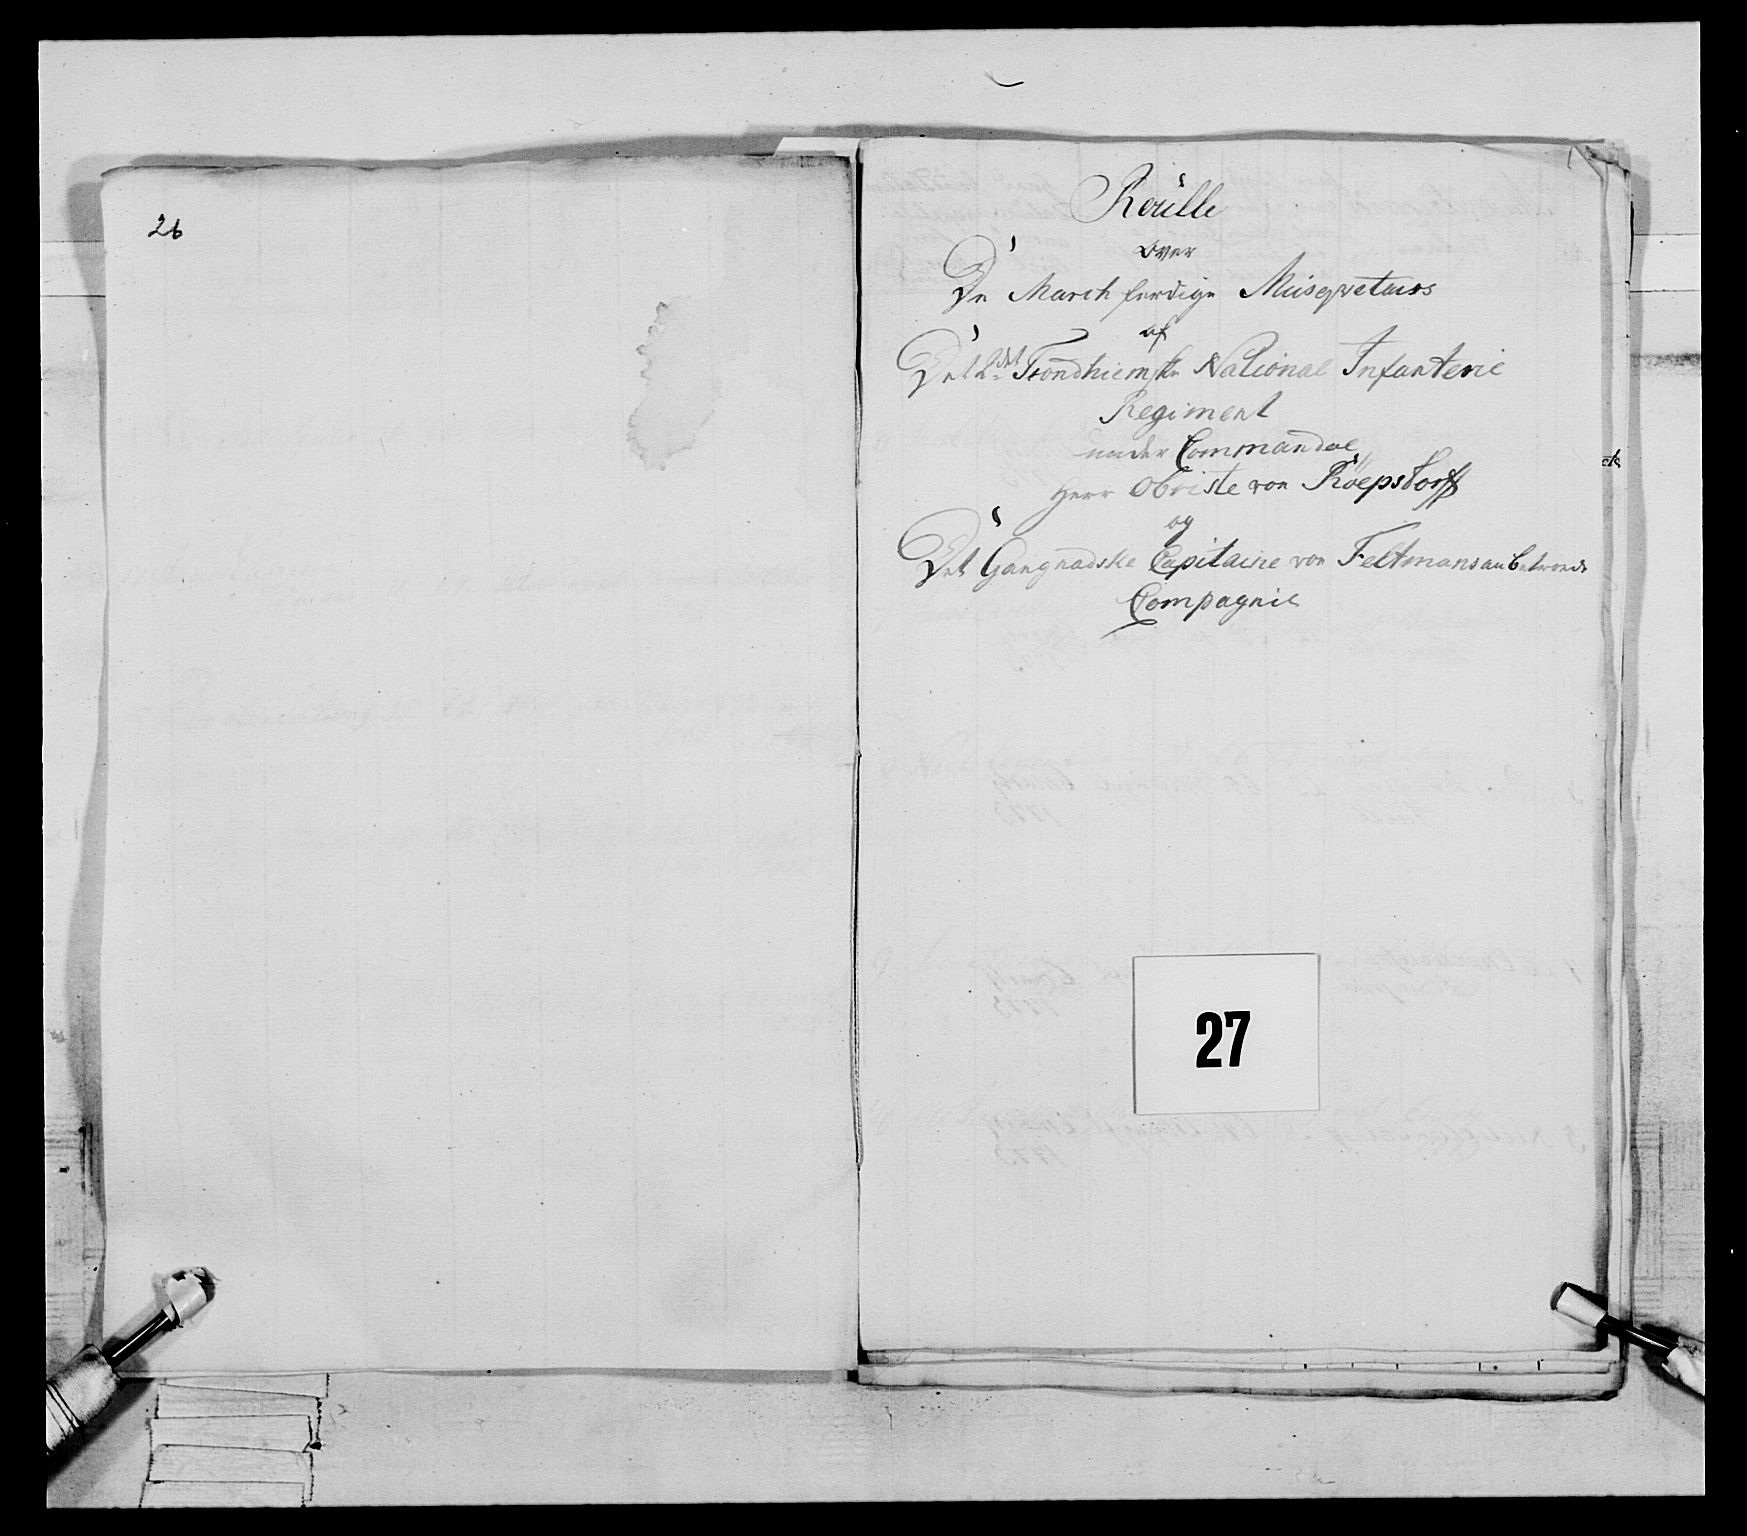 26
Roülle
over
De March ferdige Müsqvetairs
af
Det 2det Trondhiemske National Infanterie
Regiment
under Commandoe
Herr Obriste von Röepstorff
og
Det Gangnadske Capitaine von Feltmans anbetroede
Compagnie
27